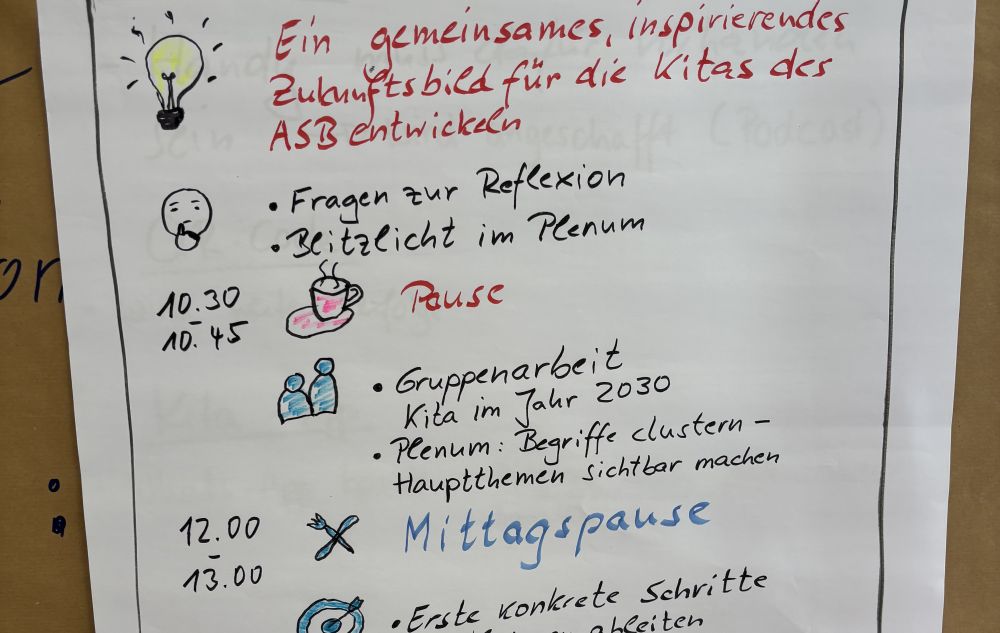 Ein gemeinsames, inspirierendes
Zukunftsbild für die Kitas des
ASB entwickeln
• Fragen zur Reflexion
• Blitzlicht im Plenum
10.30
–
10.45
Pause
• Gruppenarbeit
Kita im Jahr 2030
• Plenum: Begriffe clustern –
Hauptthemen sichtbar machen
12.00
–
13.00
Mittagspause
• Erste konkrete Schritte
ableiten